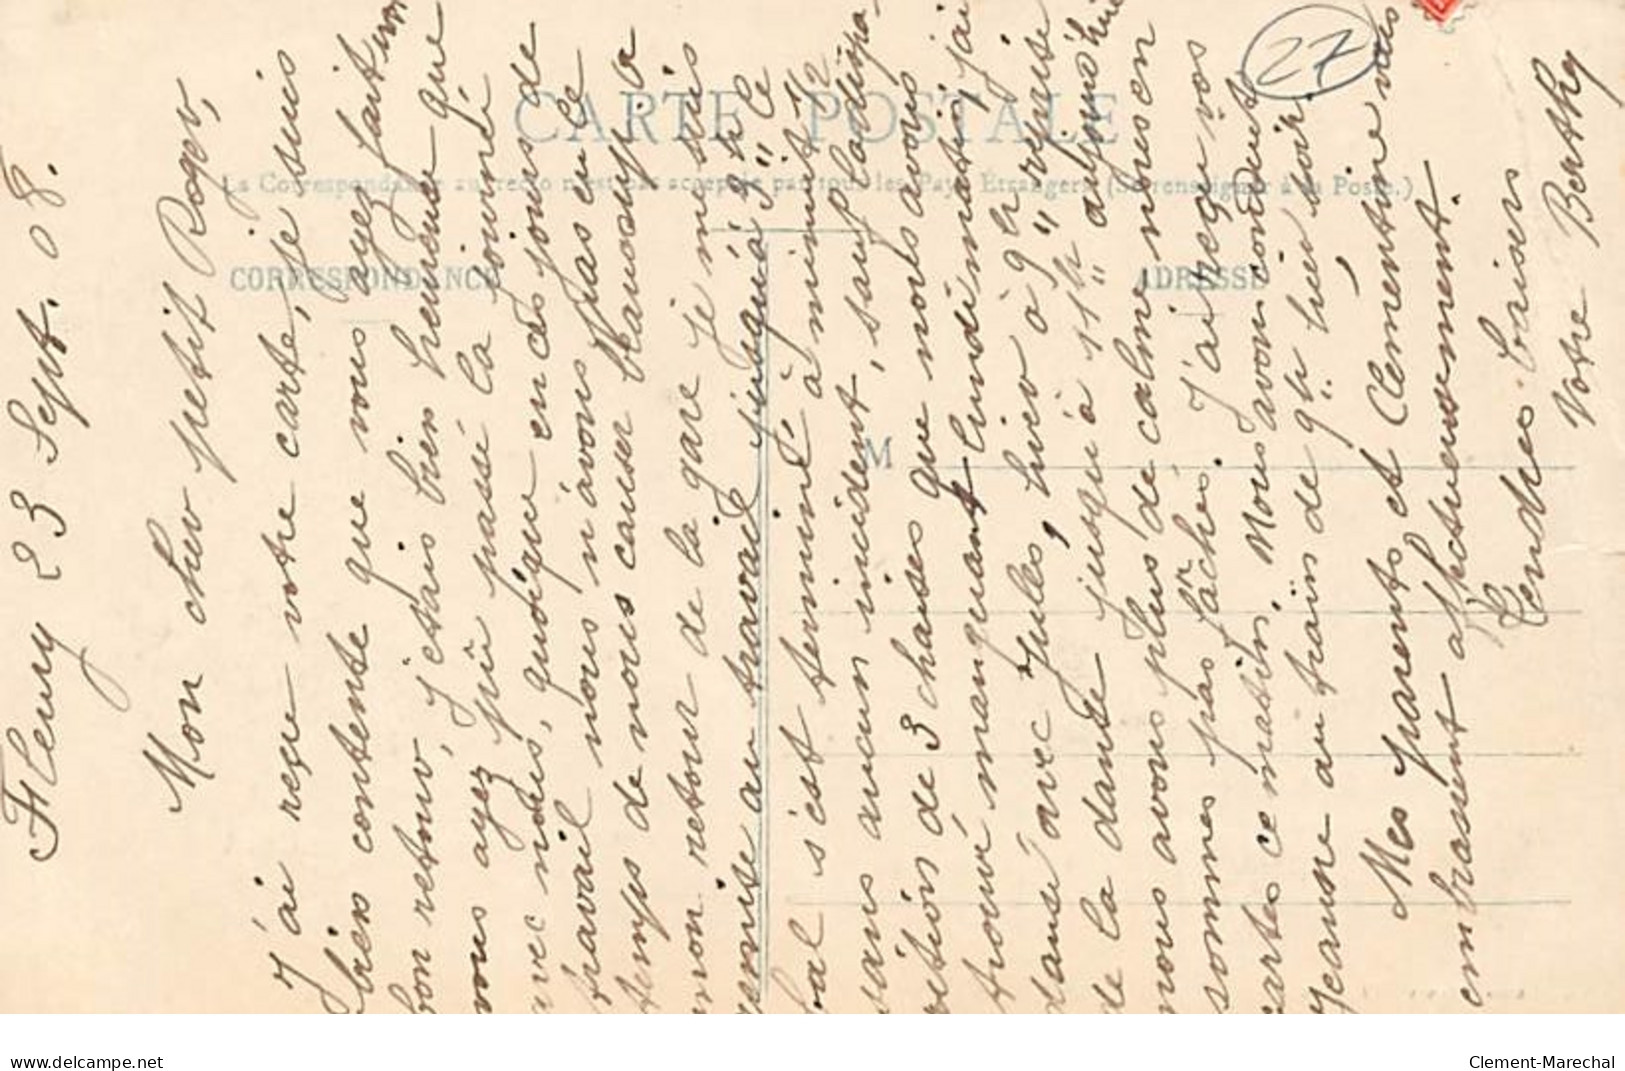 Fleury 23 Sept. 08.
Mon cher petit Roger,
J'ai reçu votre carte, je suis
bien contente que vous ayez fait un
bon retour, j'étais bien heureuse que
vous ayez pû passé la journée
avec nous, quoique en ces jours de
travail nous n'avons pas eu le
temps de nous causer beaucoup. a
mon retour de la gare je me suis
remise au travail jusqu'à 3"h le
bal s'est terminé à minuit 1/2
sans aucun incident, sauf la dispa-
rition de 3 chaises que nous avons
trouvé manquant lundi matin, j'ai
dansé avec Jules, hier à 9h reprise
de la danse jusqu'à 11"h aujourd'hui
nous avons plus de calme, nous en
sommes pas fâchés. J'ai reçu vos
cartes ce matin. Nous avons conduit
Jeanne au train de 9h hier soir.
Mes parents et Clémentine vous
embrassent affectueusement.
Tendres baisers
Votre Berthe
27
CARTE POSTALE
La Correspondance au recto n'est pas acceptée par tous les Pays Étrangers (Se renseigner à la Poste.)
CORRESPONDANCE
ADRESSE
M
www.delcampe.net
Clement-Marechal